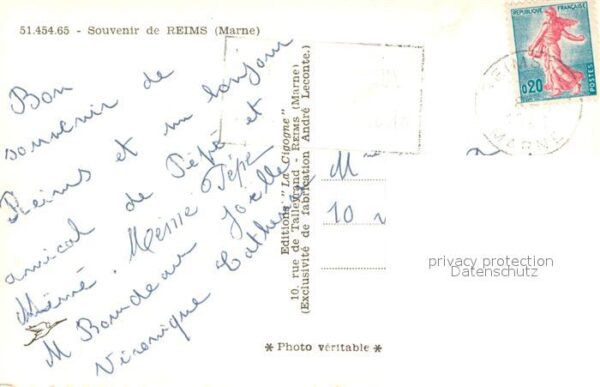 51.454.65 - Souvenir de REIMS (Marne)
Bon
souvenir de
Reims et un bonjour
amical de Pépé et
Mémé. Meme Pépé
M Bourdeau Joelle
Véronique Catherine
Editions "La Cigogne"
10, rue de Talleyrand - REIMS (Marne)
(Exclusivité de fabrication André Leconte.)
✻ Photo véritable ✻
REPUBLIQUE FRANÇAISE
0,20
POSTES
REIMS
MARNE
M
10
privacy protection
Datenschutz